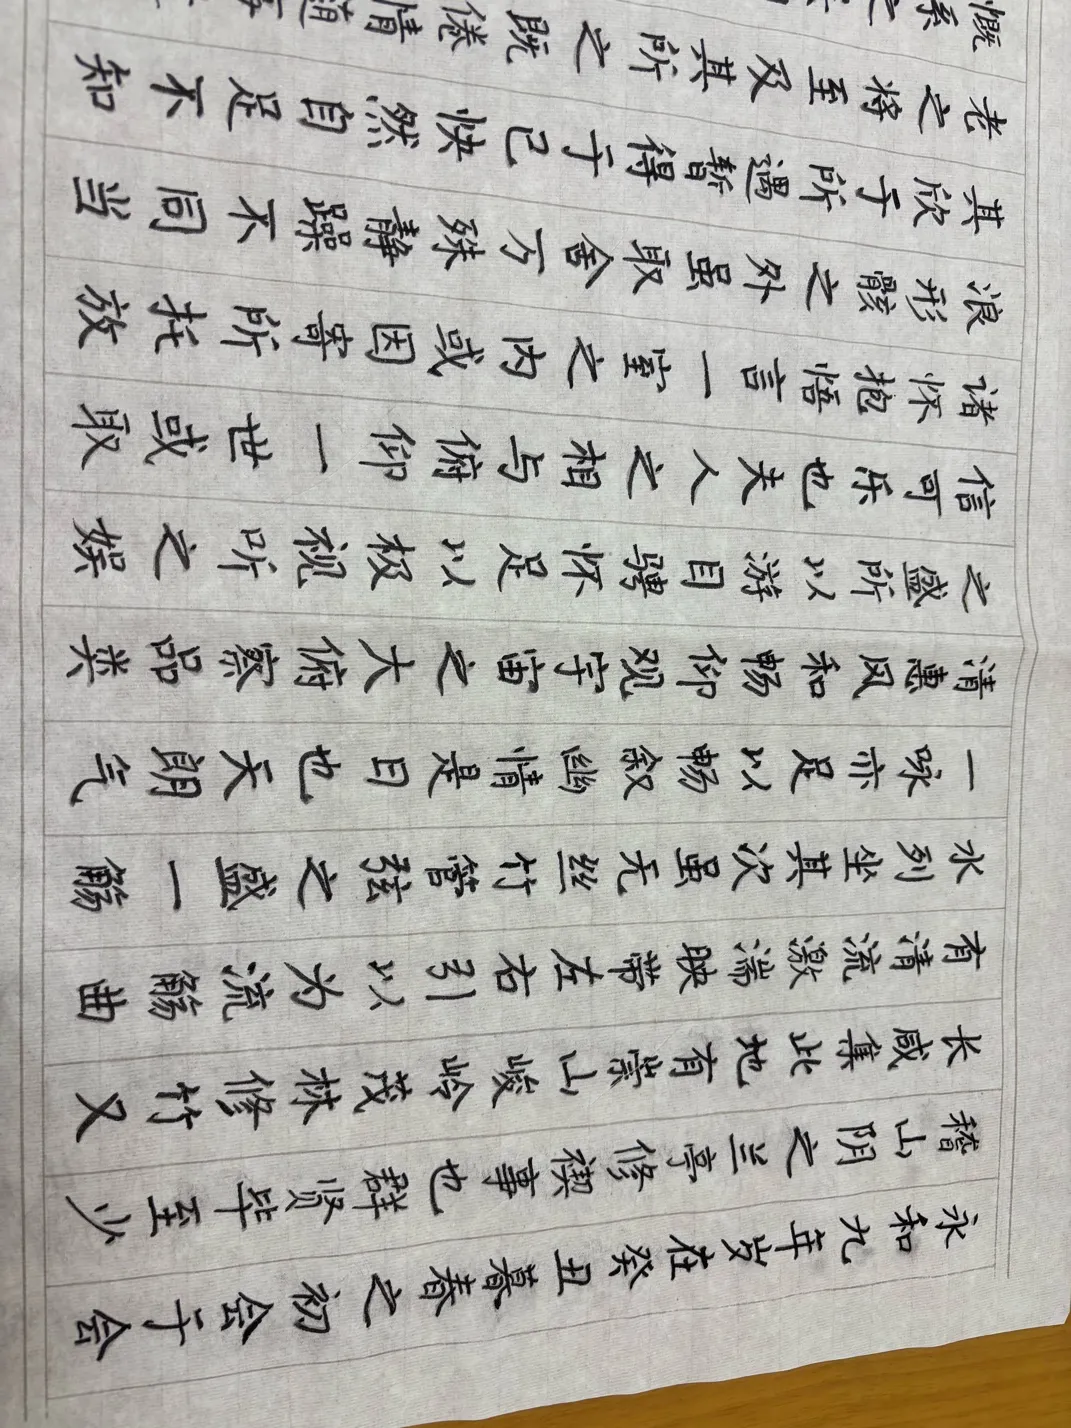 永和九年岁在癸丑暮春之初会于会
稽山阴之兰亭修禊事也群贤毕至少
长咸集此地有崇山峻岭茂林修竹又
有清流激湍映带左右引以为流觞曲
水列坐其次虽无丝竹管弦之盛一觞
一咏亦足以畅叙幽情是日也天朗气
清惠风和畅仰观宇宙之大俯察品类
之盛所以游目骋怀足以极视听之娱
信可乐也夫人之相与俯仰一世或取
诸怀抱悟言一室之内或因寄所托放
浪形骸之外虽取舍万殊静躁不同当
其欣于所遇暂得于己快然自足不知
老之将至及其所之既倦情随事
慨系之